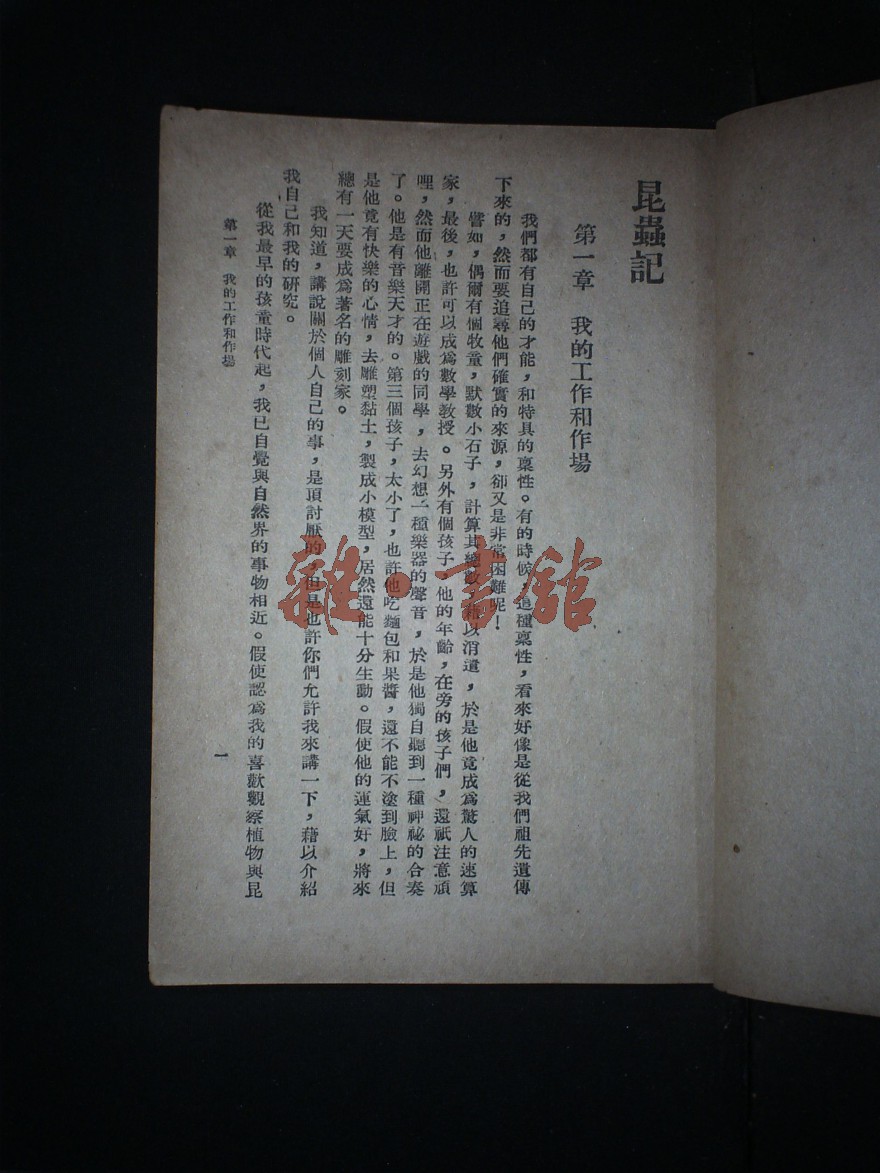 昆蟲記
第一章　我的工作和作場
我們都有自己的才能，和特具的稟性。有的時候，這種稟性，看來好像是從我們祖先遺傳
下來的，然而要追尋他們確實的來源，卻又是非常困難呢！
譬如，偶爾有個牧童，默數小石子，計算其總數，藉以消遣，於是他竟成爲驚人的速算
家，最後，也許可以成爲數學教授。另外有個孩子，他的年齡，在旁的孩子們，還祇注意頑
哩，然而他離開正在遊戲的同學，去幻想一種樂器的聲音，於是他獨自聽到一種神祕的合奏
了。他是有音樂天才的。第三個孩子，太小了，也許他吃麵包和果醬，還不能不塗到臉上，但
是他竟有快樂的心情，去雕塑黏土，製成小模型，居然還能十分生動。假使他的運氣好，將來
總有一天要成爲著名的雕刻家。
我知道，講說關於個人自己的事，是頂討厭的，但是也許你們允許我來講一下，藉以介紹
我自己和我的研究。
從我最早的孩童時代起，我已自覺與自然界的事物相近。假使認爲我的喜歡觀察植物與昆
第一章　我的工作和作場
一
雜·書館